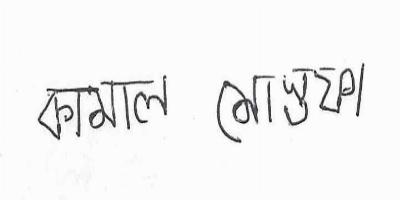 কামাল মোস্তফা